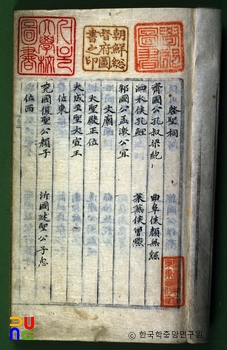 朝鮮總
督府圖
書之印
啓聖祠
齊國公孔叔梁紇 曲阜侯顔無繇
泗水侯孔鯉 萊蕪侯曾點
邾國公孟激公宜
文廟
大聖殿正位
大成至聖文宣王
位東
兗國復聖公顔子 沂國述聖公子思
位西
ⓒ 한국학중앙연구원